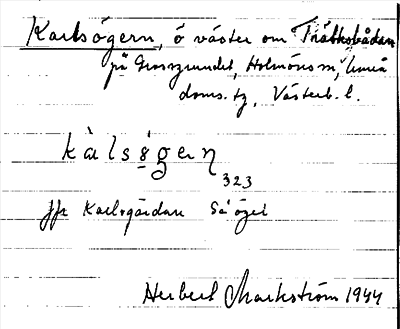 Karlsögern, ö väster om Trätbådan
på Grossgrundet, Holmöns sn, Umeå
doms. tg, Västerb. l.
kàlsö́gern
323
jfr Karlsgårdan Såöget
Herbert Markström 1944